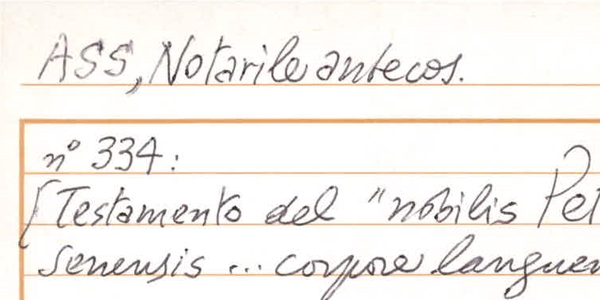 ASS, Notarile antecos.
n° 334:
[Testamento del "nobilis Pet
Senensis ... corpore languen